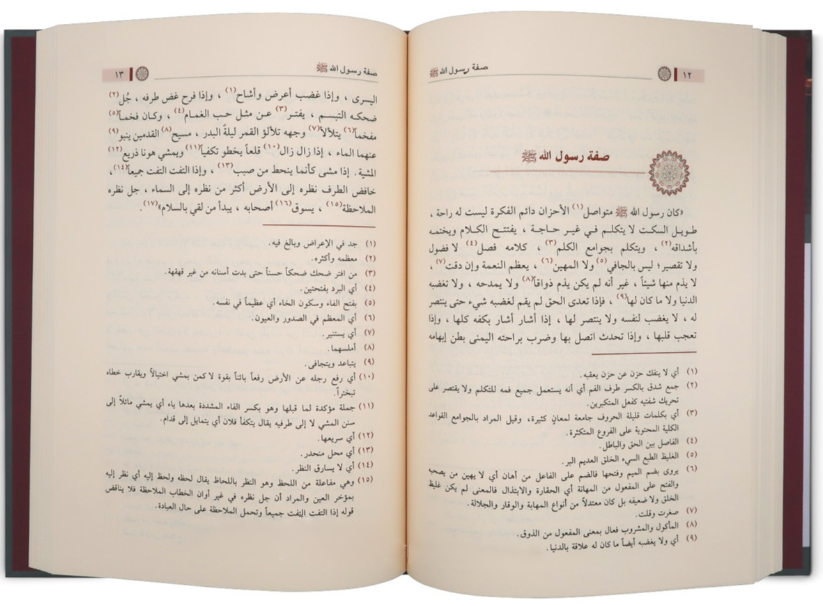 ١٢ صفة رسول الله ﷺ
صفة رسول الله ﷺ
«كان رسول الله ﷺ متواصل(١) الأحزان دائم الفكرة ليست له راحة ،
طويل السكت لا يتكلم في غير حاجة ، يفتتح الكلام ويختمه
بأشداقه(٢) ، ويتكلم بجوامع الكلم(٣) ، كلامه فصل(٤) لا فضول
ولا تقصير؛ ليس بالجافي(٥) ولا المهين(٦) ، يعظم النعمة وإن دقت(٧) ،
لا يذم منها شيئاً ، غير أنه لم يكن يذم ذواقاً(٨) ولا يمدحه ، ولا تغضبه
الدنيا ولا ما كان لها(٩) ، فإذا تعدى الحق لم يقم لغضبه شيء حتى ينتصر
له ، لا يغضب لنفسه ولا ينتصر لها ، إذا أشار أشار بكفه كلها ، وإذا
تعجب قلبها ، وإذا تحدث اتصل بها وضرب براحته اليمنى بطن إبهامه
(١) أي لا ينفك حزن عن حزن يعقبه .
(٢) جمع شدق بالكسر طرف الفم أي أنه يستعمل جميع فمه للتكلم ولا يقتصر على
تحريك شفتيه كفعل المتكبرين.
(٣) أي بكلمات قليلة الحروف جامعة لمعانٍ كثيرة، وقيل المراد بالجوامع القواعد
الكلية المحتوية على الفروع المتكثرة.
(٤) الفاصل بين الحق والباطل.
(٥) الغليظ الطبع السيء الخلق العديم البر.
(٦) يروى بضم الميم وفتحها فالضم على الفاعل من أهان أي لا يهين من يصحبه
والفتح على المفعول من المهانة أي الحقارة والابتذال فالمعنى لم يكن غليظ
الخلق ولا ضعيفه بل كان معتدلاً من أنواع المهابة والوقار والجلالة.
(٧) صغرت وقلت.
(٨) المأكول والمشروب فعال بمعنى المفعول من الذوق.
(٩) أي ولا يغضبه أيضاً ما كان له علاقة بالدنيا.
صفة رسول الله ﷺ ١٣
اليسرى ، وإذا غضب أعرض وأشاح(١) ، وإذا فرح غض طرفه ، جُل(٢)
ضحكه التبسم ، يفتر(٣) عن مثل حب الغمام(٤) ، وكان فخماً(٥)
مفخماً(٦) يتلألأ(٧) وجهه تلألؤ القمر ليلة البدر ، مسيح(٨) القدمين ينبو(٩)
عنهما الماء ، إذا زال زال(١٠) قلعاً يخطو تكفياً(١١) ويمشي هونا ذريع(١٢)
المشية . إذا مشى كأنما ينحط من صبب(١٣) ، وإذا التفت التفت جميعاً(١٤)،
خافض الطرف نظره إلى الأرض أكثر من نظره إلى السماء ، جل نظره
الملاحظة(١٥) ، يسوق(١٦) أصحابه ، يبدأ من لقي بالسلام»(١٧).
(١) جد في الإعراض وبالغ فيه.
(٢) معظمه وأكثره.
(٣) من افتر ضحك ضحكاً حسناً حتى بدت أسنانه من غير قهقهة.
(٤) أي البرد بفتحتين.
(٥) بفتح الفاء وسكون الخاء أي عظيماً في نفسه.
(٦) أي المعظم في الصدور والعيون.
(٧) أي يستنير.
(٨) أملسهما.
(٩) يتباعد ويتجافى.
(١٠) أي رفع رجله عن الأرض رفعاً بائناً بقوة لا كمن يمشي اختيالاً ويقارب خطاه
تبختراً.
(١١) جملة مؤكدة لما قبلها وهو بكسر الفاء المشددة بعدها ياء أي يمشي مائلاً إلى
سنن المشي لا إلى طرفيه يقال يتكفأ فلان أي يتمايل إلى قدام.
(١٢) أي سريعها.
(١٣) أي محل منحدر.
(١٤) أي لا يسارق النظر.
(١٥) وهي مفاعلة من اللحظ وهو النظر باللحاظ يقال لحظه ولحظ إليه أي نظر إليه
بمؤخر العين والمراد أن جل نظره في غير أوان الخطاب الملاحظة فلا يناقض
قوله إذا التفت التفت جميعاً وتحمل الملاحظة على حال العبادة.